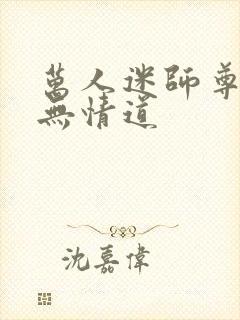 萬人迷師尊
無情道
沈嘉偉